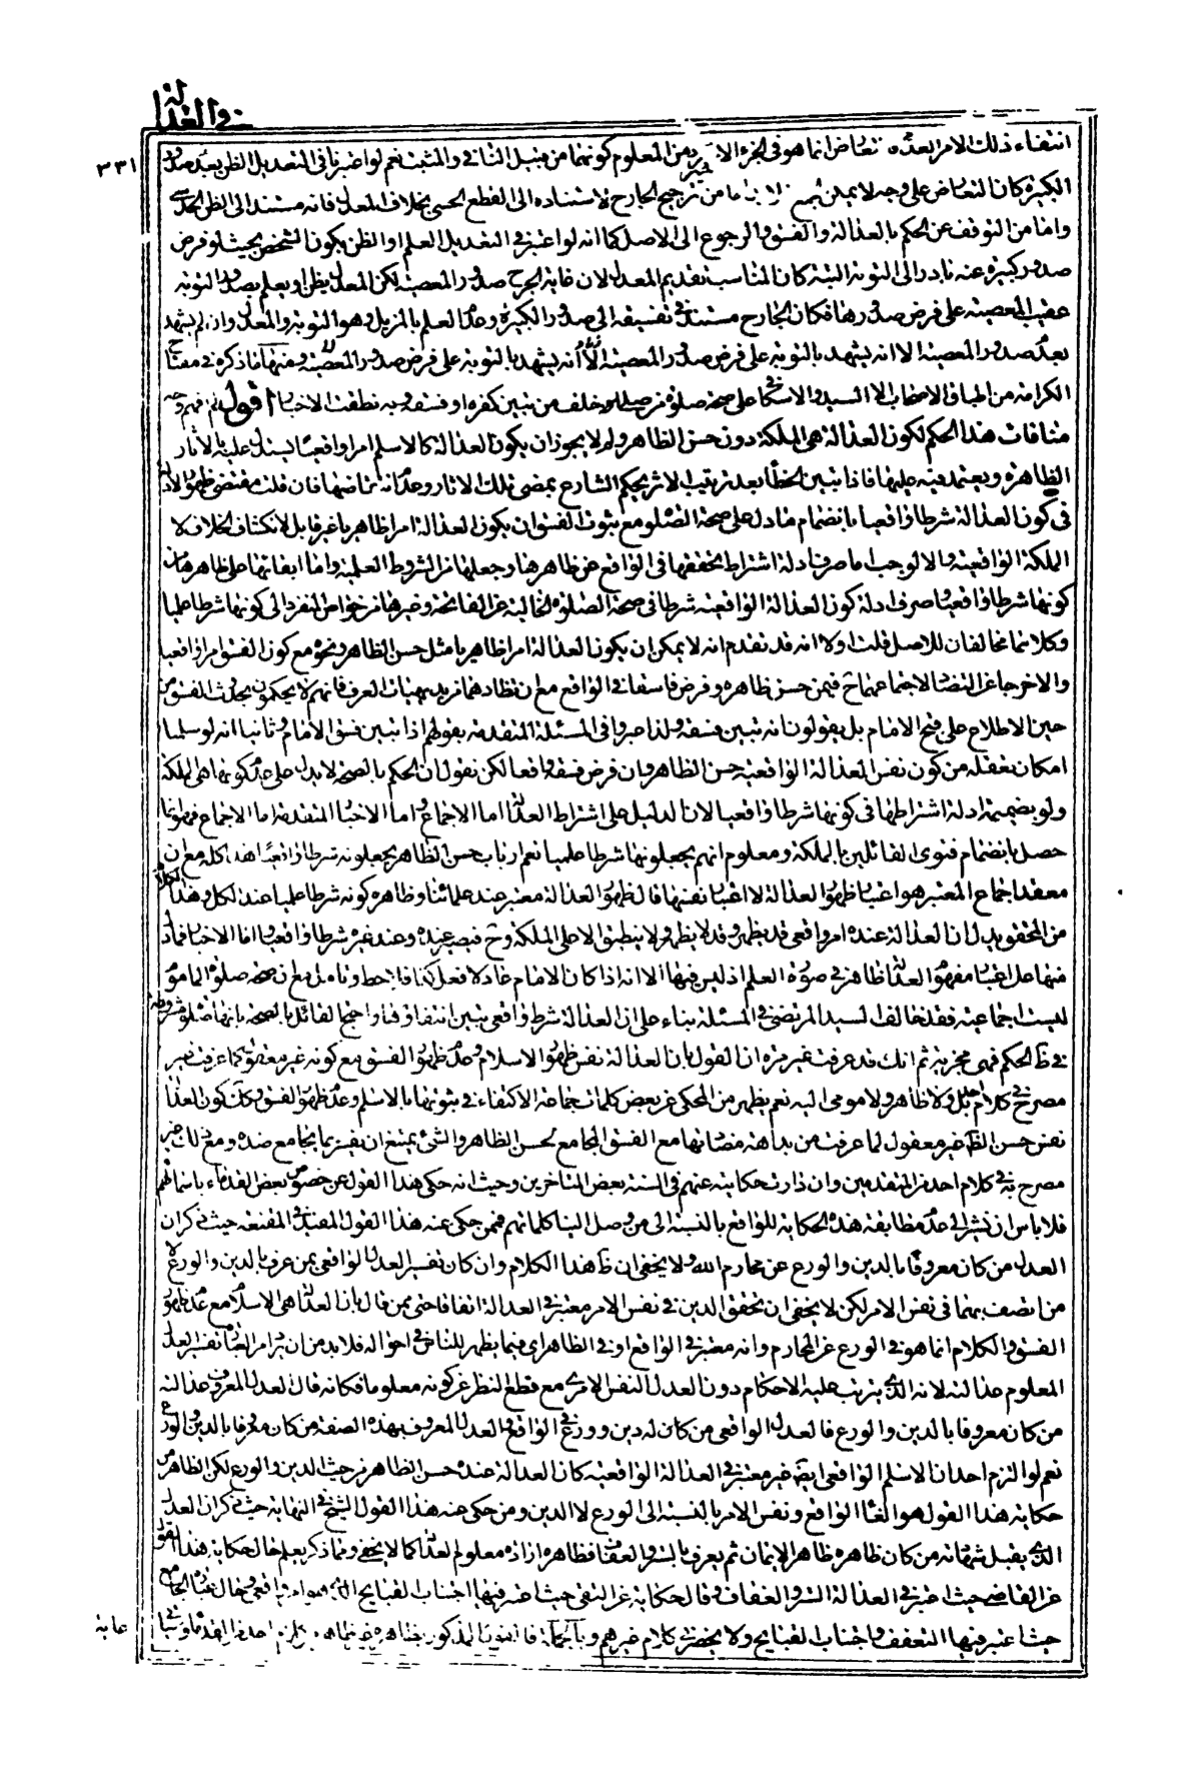 في العدالة
٣٣١
انتفاء ذلك الامر بعده تعارض انما هو في الجزء الاخير ومن المعلوم كونهما من قبيل النافي والمثبت نعم لو اعتبرنا في التعديل الظن بعدم صدور
الكبيرة كان التعارض على وجه لا يمكن الجمع من ترجيح الجارح لاستناده الى القطع الحسي بخلاف المعدل فانه مستند الى الظن الحدسي
واما من التوقف عن الحكم بالعدالة والفسق والرجوع الى الاصل كما انه لو اعتبر في التعديل العلم او الظن بكون الشخص بحيث لو فرض
صدور كبيرة عنه بادر الى التوبة البتة كان المناسب تقديم المعدل لان غاية الجرح صدور المعصية لكن المعدل يظن او يعلم بصدور التوبة
عقيب المعصية على فرض صدورها فكان الجارح مستند في تفسيقه الى صدور الكبيرة وعدم العلم بالمزيل وهو التوبة والمعدل وان لم يشهد
بعدم صدور المعصية الا انه يشهد بالتوبة على فرض صدور المعصية ومنها ما ذكره في مفتاح
الكرامة من اطباق الاصحاب الا السيد والاسكافي على صحة صلوة من صلى خلف من تبين كفره او فسقه وبه نطقت الاخبار اقول لم نفهم وجه
منافات هذا الحكم لكون العدالة هي الملكة دون حسن الظاهر ولم لا يجوز ان يكون العدالة كالاسلام امرا واقعيا يستدل عليه بالاثار
الظاهرة ويعتمد فيه عليها فاذا تبين الخطأ بعد ترتيب الاثر يحكم الشارع بمضي تلك الاثار وعدم انتقاضها فان قلت مقتضى ظهور الادلة
في كون العدالة شرطا واقعيا بانضمام ما دل على صحة الصلوة مع تبين الفسق ان يكون العدالة امرا ظاهريا غير قابل لانكشاف الخلاف لا
الملكة الواقعية والا لوجب اما صرف ادلة اشتراط تحققها في الواقع عن ظاهرها وجعلها من الشروط العلمية واما ابقائها على ظاهرها من
كونها شرطا واقعيا وصرف ادلة كون العدالة الواقعية شرطا في صحة الصلوة الخالية عن الفاتحة وغيرها من خواص المنفرد الى كونها شرطا علميا
وكلاهما مخالفان للاصل قلت اولا انه قد تقدم انه لا يمكن ان يكون العدالة امرا ظاهريا مثل حسن الظاهر ونحوه مع كون الفسق امرا واقعيا
والا خرجا عن التضاد لاجتماعهما ح فيمن حسن ظاهره وفرض فاسقا في الواقع مع ان تضادهما من بديهيات العرف فانهم لا يحكمون بحدوث الفسق من
حين الاطلاع على قبح الامام بل يقولون انه تبين فسقه ولذا عبروا في المسئلة المتقدمة بقولهم اذا تبين فسق الامام وثانيا انه لو سلمنا
امكان تعقله من كون نفس العدالة الواقعية حسن الظاهر وان فرض فسقه واقعا لكن نقول ان الحكم بالصحة لا يدل على عدم كونها هي الملكة
ولو بضميمة ادلة اشتراطها في كونها شرطا واقعيا لان الدليل على اشتراط العدالة اما الاجماع واما الاخبار المتقدمة اما الاجماع فهو انما
حصل بانضمام فتوى القائلين بالملكة ومعلوم انهم يجعلونها شرطا علميا نعم ارباب حسن الظاهر يجعلونه شرطا واقعيا هذا كله مع ان
معقد اجماع المعتبر هو اعتبار ظهور العدالة لا اعتبار نفسها قال ظهور العدالة معتبر عند علمائنا وظاهره كونه شرطا علميا عند الكل وهذا الكلام
من المحقق يدل ان العدالة عنده امر واقعي قد يظهر وقد لا يظهر ولا ينطبق الا على الملكة وح فيصير عنده وعند غيره شرطا واقعيا واما الاخبار فما دل
منها على اعتبار مفهوم العدالة ظاهر في صورة العلم اذ ليس فيها الا انه اذا كان الامام عادلا فعل كذا فلاحظ وتامل مع ان صحة صلوة الماموم
ليست اجماعية فقد خالف السيد المرتضى في المسئلة بناء على ان العدالة شرط واقعي تبين انتفاؤها واحتج القائل بالصحة بانها صلوة مشروعة
في ظ الحكم فهي مجزية ثم انك قد عرفت غير مرة ان القول بان العدالة نفس ظهور الاسلام وعدم ظهور الفسق مع كونه غير معقول كما عرفت غير
مصرح في كلام احد بل ولا ظاهر ولا مومى اليه نعم يظهر من المحكي عن بعض كلمات جماعة الاكتفاء في ثبوتها بالاسلام وعدم ظهور الفسق وكذا كون العدالة
نفس حسن الظ غير معقول لما عرفت من بداهة مضادتها مع الفسق الجامع لحسن الظاهر والشئ يمتنع ان يفسر بما يجامع ضده ومع ذلك غير
مصرح به في كلام احد من المتقدمين وان دارت حكايته عنهم في السنة بعض المتاخرين وحيث انه حكى هذا القول عن خصوص بعض القدماء باسمائهم
فلا باس ان نشير الى عدم مطابقة هذه الحكاية للواقع بالنسبة الى من وصل الينا كلماتهم فممن حكى عنه هذا القول المفيد في المقنعة حيث ذكر ان
العدل من كان معروفا بالدين والورع عن محارم الله ولا يخفى ان ظ هذا الكلام وان كان تفسير العدل الواقعي بمن عرف بالدين والورع لا
من اتصف بهما في نفس الامر لكن لا يخفى ان تحقق الدين في نفس الامر معتبر في العدالة اتفاقا حتى ممن قال بان العدالة هي الاسلام مع عدم ظهور
الفسق والكلام انما هو في الورع عن المحارم وانه معتبر في الواقع او في الظاهر اي فيما يظهر للناس في احواله فلابد من ان يراد من العبارة تفسير العدل
المعلوم عدالته لانه الذي يترتب عليه الاحكام دون العدل النفس الامري مع قطع النظر عن كونه معلوما فكانه قال العدل المعروف عدالته
من كان معروفا بالدين والورع فالعدل الواقعي من كان له دين وورع في الواقع والعدل المعروف بهذه الصفة من كان معروفا بالدين والورع
نعم لو التزم احد ان الاسلام الواقعي ايضا غير معتبر في العدالة الواقعية كان العدالة عنده حسن الظاهر من حيث الدين والورع لكن الظاهر من
حكاية هذا القول هو الغاء الواقع ونفس الامر بالنسبة الى الورع لا الدين وممن حكى عنه هذا القول الشيخ في النهاية حيث ذكر ان العدل
الذي يقبل شهادته من كان ظاهره ظاهر الايمان ثم يعرف بالستر والعفاف فظاهره ارادة معلوم العدالة كما لا يخفى ومما ذكر يعلم حال حكاية هذا القول
عن القاضي حيث اعتبر في العدالة الستر والعفاف وحال حكايته عن التقي حيث اعتبر فيها اجتناب القبايح وحال
حيث اعتبر فيها التعفف واجتناب القبايح ولا يحضرني كلام غيرهم وبالجملة فالقول المذكور